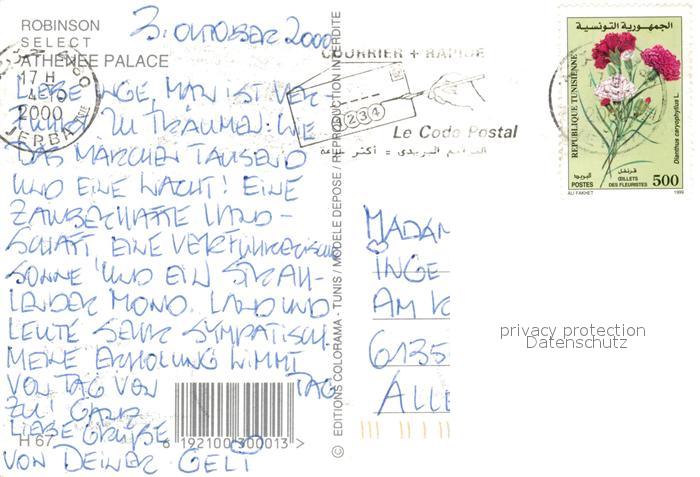 ROBINSON
SELECT
ATHÉNÉE PALACE
3. OKTOBER 2000
17 H
4-10
2000
JERBA
COURRIER + RAPIDE
1234
Le Code Postal
الترقيم البريدي = أكثر
LIEBE INGE, MAN IST VER-
ZU TRÄUMEN: WIE
DAS MÄRCHEN TAUSEND
UND EINE NACHT! EINE
ZAUBERHAFTE LAND-
SCHAFT, EINE VERFÜHRERISCHE
SONNE UND EIN STRAH-
LENDER MOND. LAND UND
LEUTE SEHR SYMPATISCH.
MEINE ERHOLUNG NIMMT
VON TAG VON TAG
ZU! GANZ
LIEBE GRÜßE
VON DEINER GELI
H 67
6 192100 300013 >
© EDITIONS COLLORAMA - TUNIS / MODELE DEPOSE / REPRODUCTION INTERDITE
الجمهورية التونسية
REPUBLIQUE TUNISIENNE
Dianthus caryophyllus L.
قرنفل
ŒILLETS
DES FLEURISTES
البريد
POSTES
500
ALI FAKHET
1999
MADAM
INGE
AM K
6135
ALLE
privacy protection
Datenschutz